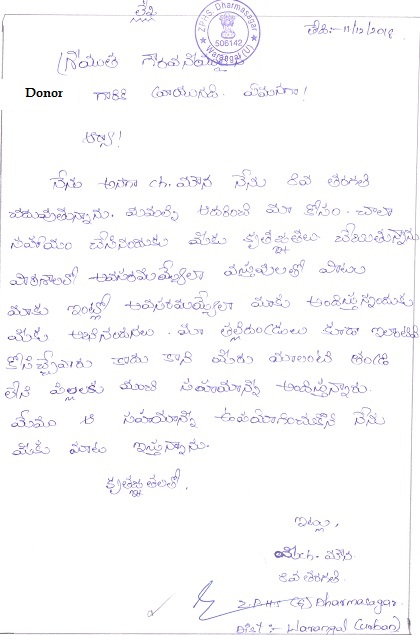 లేఖ
Z.P.H.S. Dharmasagar
506142
Warangal (U)
తేది:- 11/12/2018
శ్రీయుత గౌరవనీయులైన
Donor గారికి వ్రాయునది ఏమనగా!
ఆర్యా!
నేను అనగా ch. మౌన నేను 8వ తరగతి
చదువుతున్నాను. మా కోసం చాలా
సహాయం చేసినందుకు మీకు కృతజ్ఞతలు తెలుపుతున్నాను
అవసరమయ్యేలా వస్తువులతో పాటు
మాకు ఇంట్లో అవసరమయ్యేలా మాకు అందిస్తున్నందుకు
మీకు అభినందనలు. మా తల్లిదండ్రులు కూడా ఇలాంటివి
కొనిచ్చేవారు కాదు కాని మీరు మాలాంటి తండ్రి
లేని పిల్లలకు మంచి సహాయాన్ని అందిస్తున్నారు.
మేమం ఆ సహాయాన్ని ఉపయోగించుకొని నేను
మీకు మాట ఇస్తున్నాను.
కృతజ్ఞతలతో,
ఇట్లు,
ch. మౌన
8వ తరగతి
Z.P.H.S (G) Dharmasagar
Dist :- Warangal (urban)